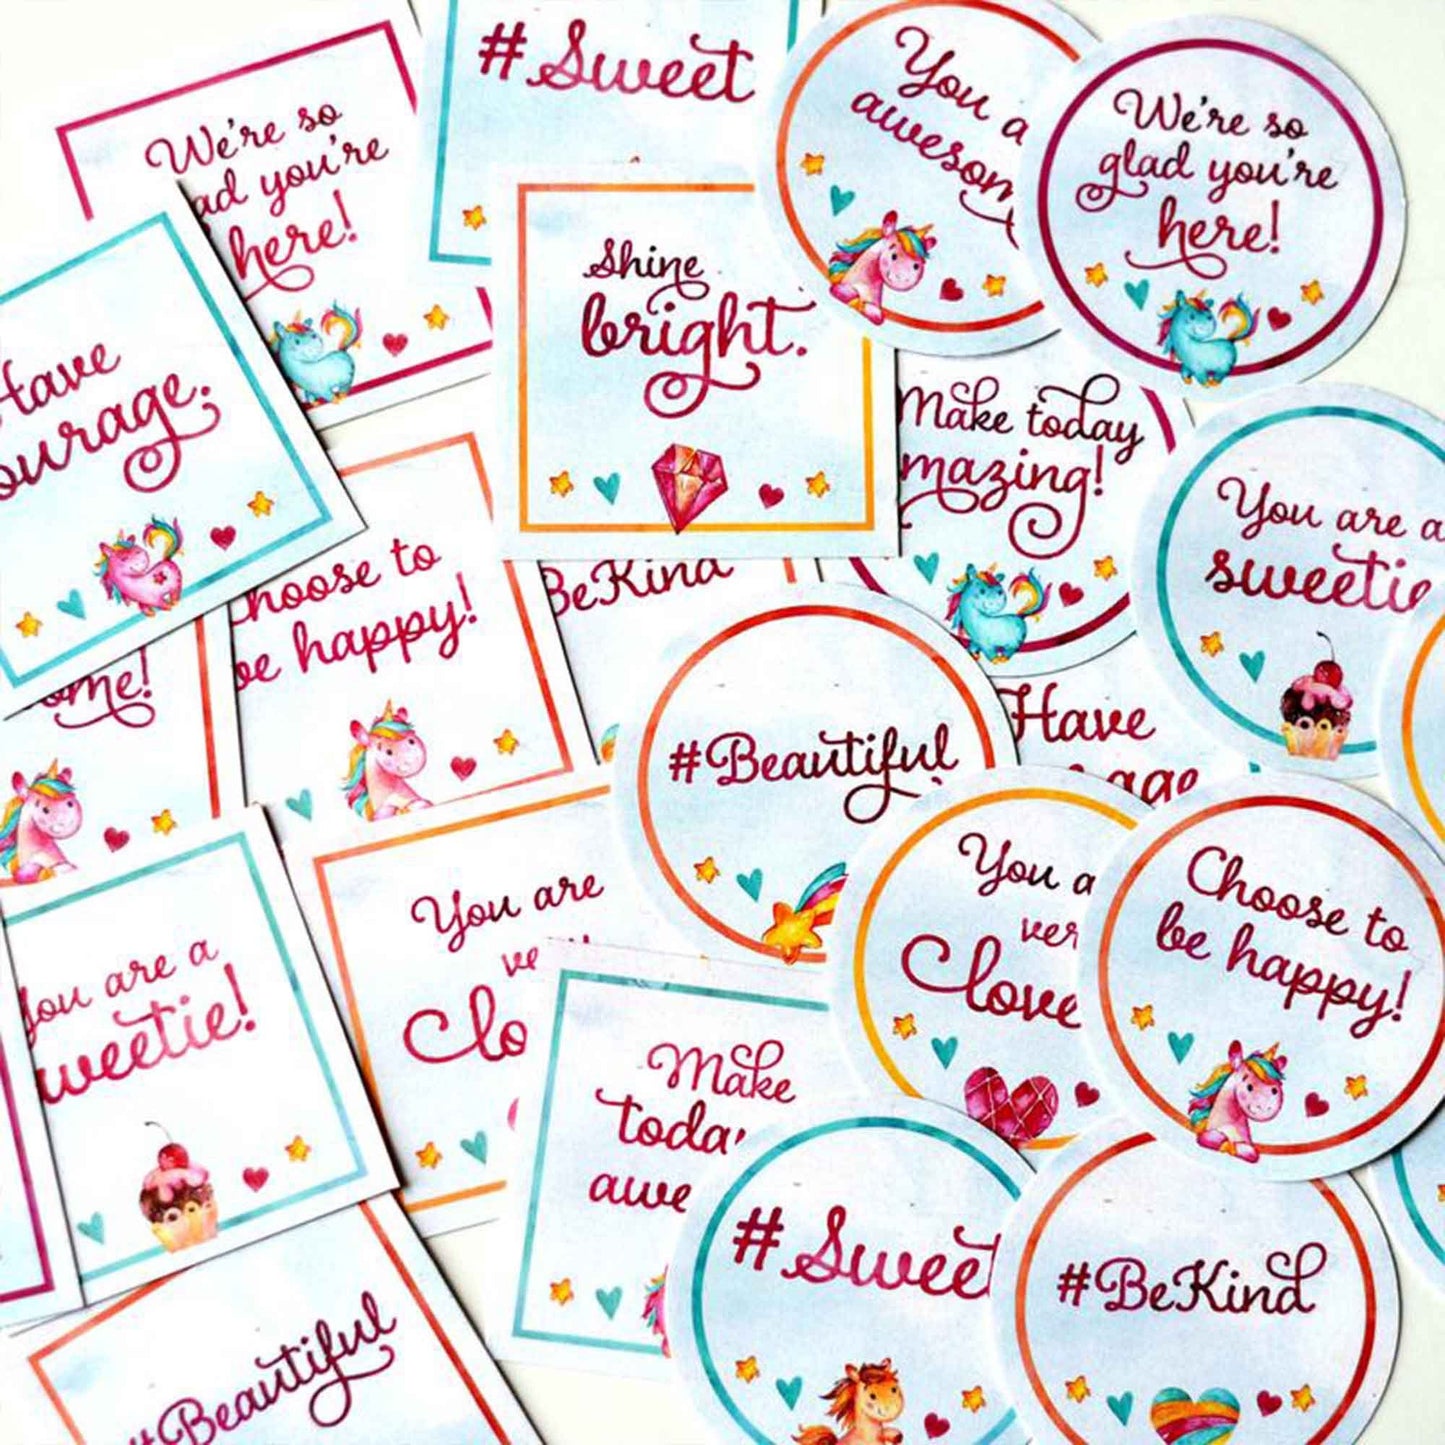 #Sweet
We're so
glad you're
here!
You a
awesom
We're so
glad you're
here!
Shine
bright.
Have
ourage.
Make today
mazing!
You are a
sweetie
hoose to
be happy!
BeKind
ome!
#Beautiful
Have
rage
You are
ve
Clo
You a
ver
Clove
Choose to
be happy!
You are a
weetie!
Make
today
awe
#Sweet
#BeKind
#Beautiful